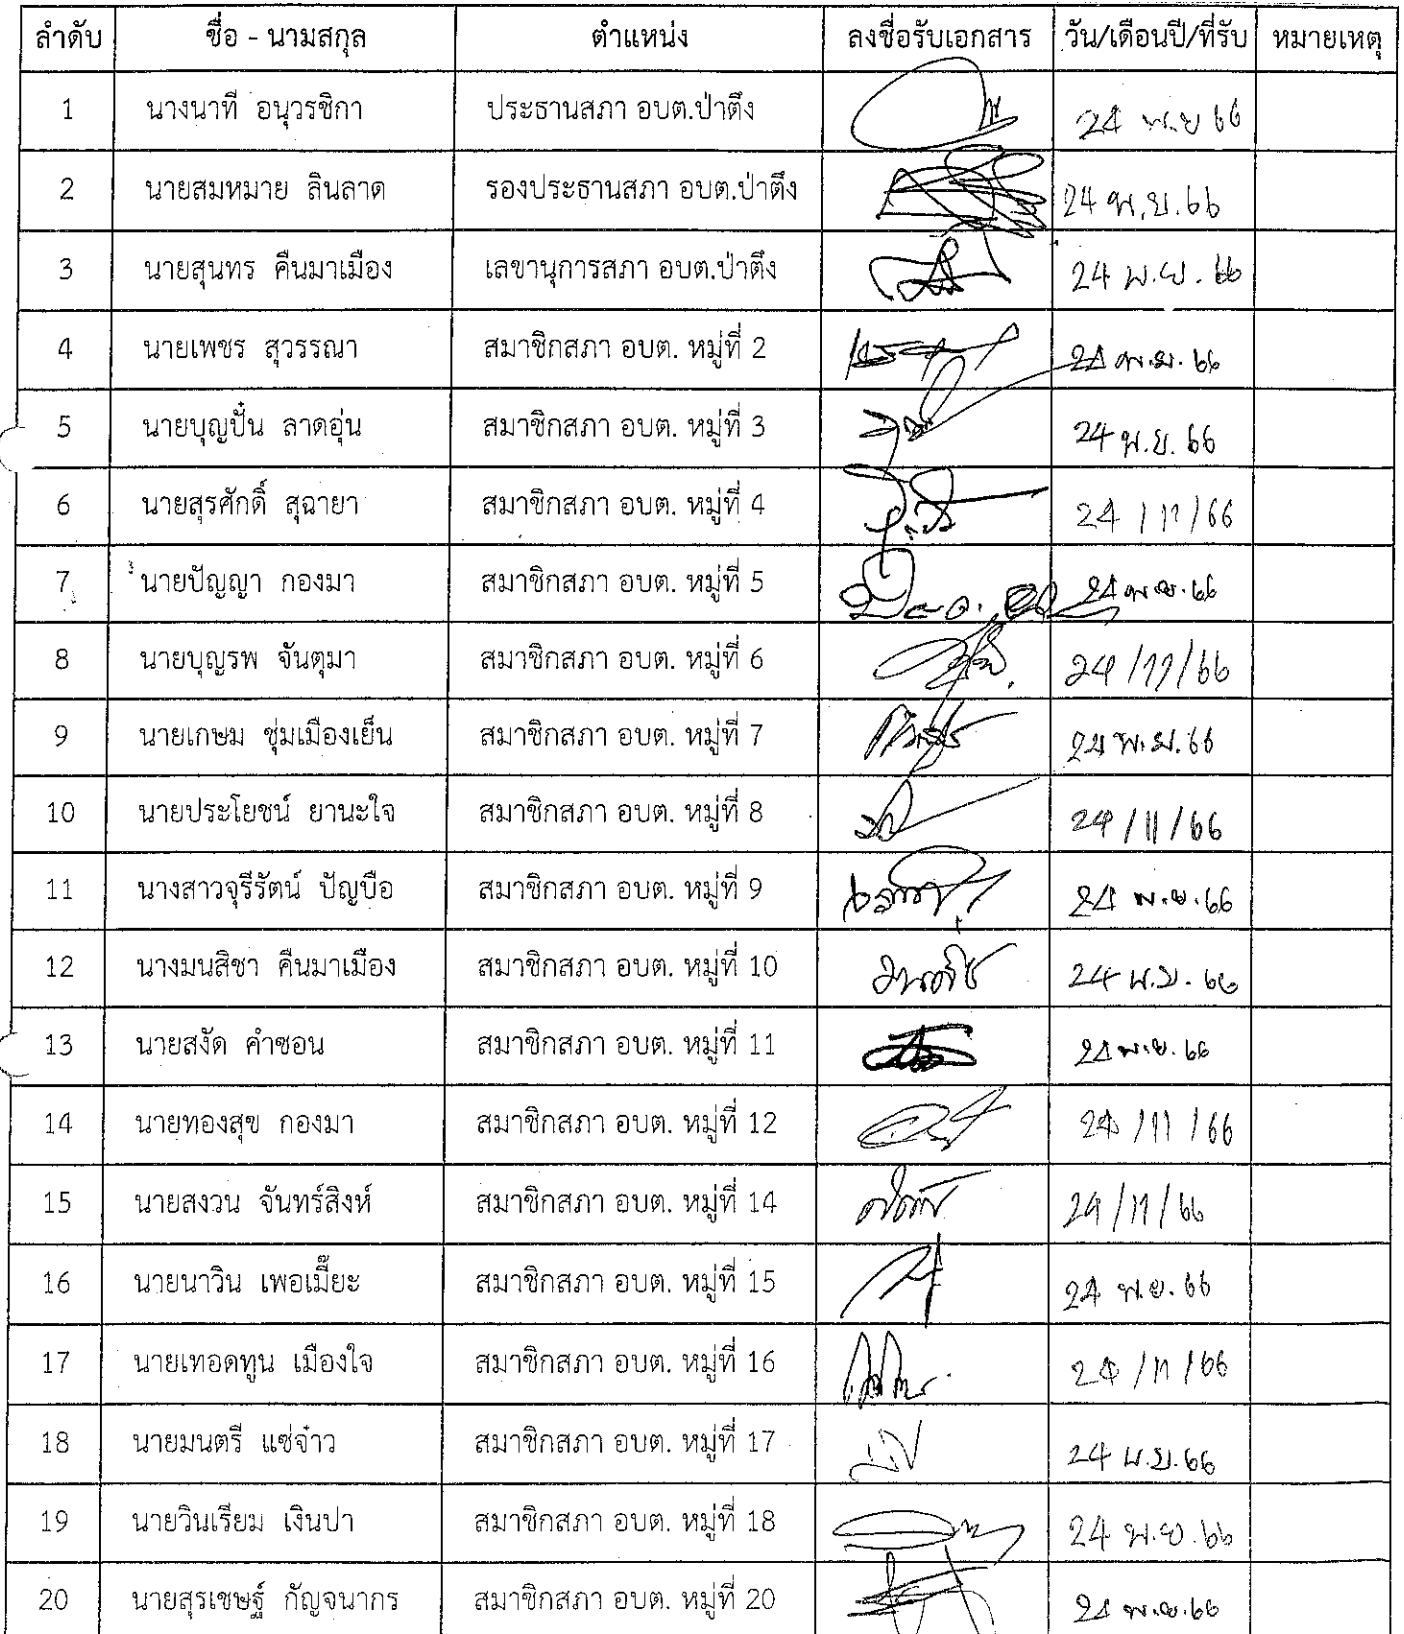 ลำดับ ชื่อ - นามสกุล ตำแหน่ง ลงชื่อรับเอกสาร วัน/เดือนปี/ที่รับ หมายเหตุ
1 นางนาที อนุวรชิกา ประธานสภา อบต.ป่าตึง 24 พ.ย 66
2 นายสมหมาย ลินลาด รองประธานสภา อบต.ป่าตึง 24 พ.ย.66
3 นายสุนทร คืนมาเมือง เลขานุการสภา อบต.ป่าตึง 24 พ.ย. 66
4 นายเพชร สุวรรณา สมาชิกสภา อบต. หมู่ที่ 2 24 พ.ย. 66
5 นายบุญปั๋น ลาดอุ่น สมาชิกสภา อบต. หมู่ที่ 3 24 พ.ย. 66
6 นายสุรศักดิ์ สุฉายา สมาชิกสภา อบต. หมู่ที่ 4 24 / 11 / 66
7 นายปัญญา กองมา สมาชิกสภา อบต. หมู่ที่ 5 24 พ.ย. 66
8 นายบุญรพ จันตุมา สมาชิกสภา อบต. หมู่ที่ 6 24 /11/66
9 นายเกษม ชุ่มเมืองเย็น สมาชิกสภา อบต. หมู่ที่ 7 24 พ.ย. 66
10 นายประโยชน์ ยานะใจ สมาชิกสภา อบต. หมู่ที่ 8 24 /11 / 66
11 นางสาวจุรีรัตน์ ปัญบือ สมาชิกสภา อบต. หมู่ที่ 9 24 พ.ย. 66
12 นางมนสิชา คืนมาเมือง สมาชิกสภา อบต. หมู่ที่ 10 24 พ.ย. 66
13 นายสงัด คำซอน สมาชิกสภา อบต. หมู่ที่ 11 24 พ.ย. 66
14 นายทองสุข กองมา สมาชิกสภา อบต. หมู่ที่ 12 24 /11 / 66
15 นายสงวน จันทร์สิงห์ สมาชิกสภา อบต. หมู่ที่ 14 24 /11 / 66
16 นายนาวิน เพอเมี๊ยะ สมาชิกสภา อบต. หมู่ที่ 15 24 พ.ย. 66
17 นายเทอดทูน เมืองใจ สมาชิกสภา อบต. หมู่ที่ 16 24 /11 / 66
18 นายมนตรี แซ่จ๋าว สมาชิกสภา อบต. หมู่ที่ 17 24 พ.ย. 66
19 นายวินเรียม เงินปา สมาชิกสภา อบต. หมู่ที่ 18 24 พ.ย. 66
20 นายสุรเชษฐ์ กัญจนากร สมาชิกสภา อบต. หมู่ที่ 20 24 พ.ย. 66